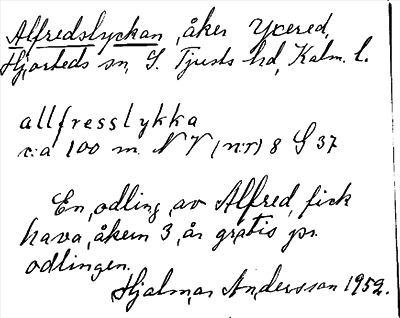 Alfredslyckan, åker Yxered,
Hjorteds sn, S. Tjusts hd, Kalm. l.
allfresslykka
c:a 100 m NV (nr) 8 S 37
En odling av Alfred, fick
hava åkern 3 år gratis för
odlingen.
Hjalmar Andersson 1952.